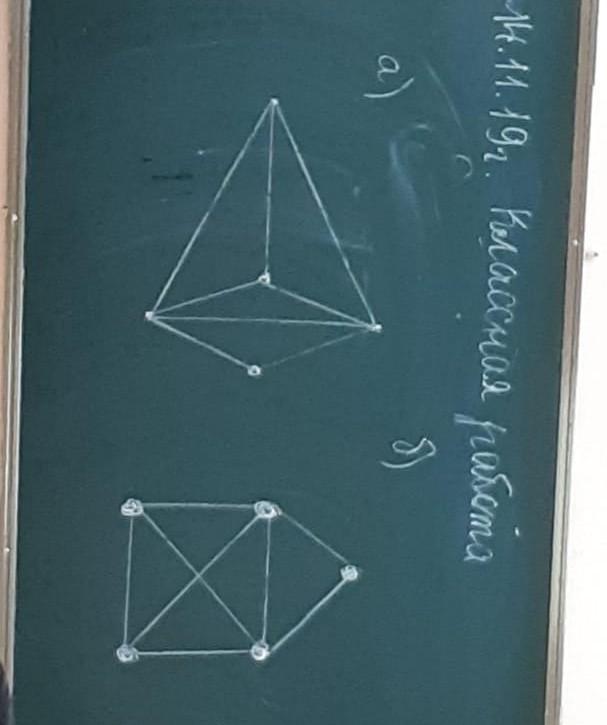 14.11.19г. Классная работа
а)
б)